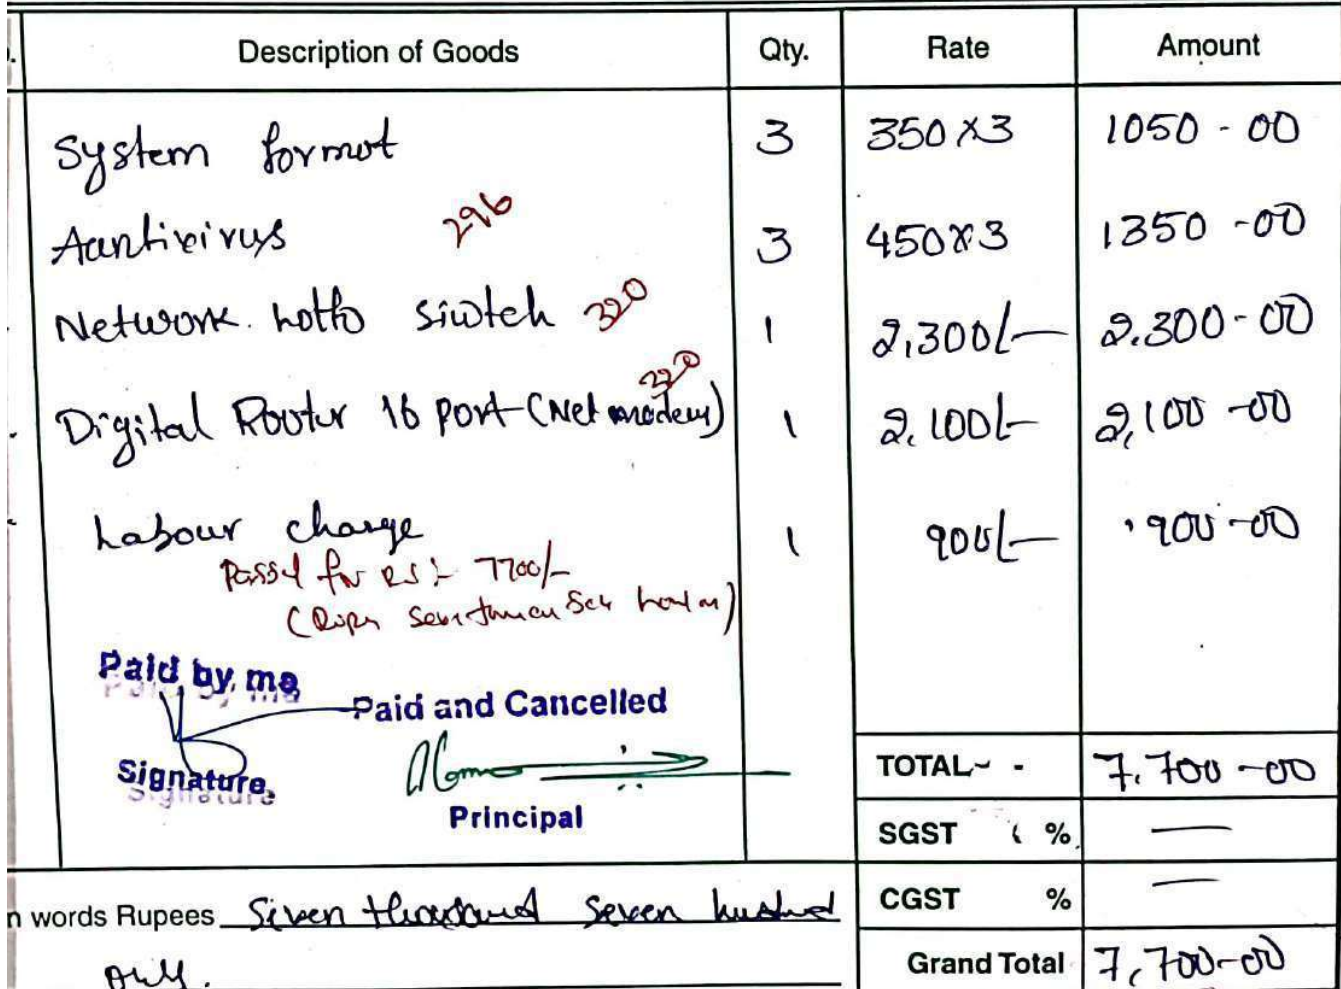 Description of Goods Qty. Rate Amount
System format 3 350x3 1050-00
Aantivirus 296 3 450x3 1350-00
Network siwtch 320 1 2,300/- 2.300-00
Digital Router 16 port (Net modem) 320 1 2,100/- 2,100-00
Labour charge 1 900/- 900-00
Passed for RS:- 7700/-
Paid by me
Paid and Cancelled
Signature
Principal
TOTAL 7.700-00
SGST %
CGST %
n words Rupees Seven thousand seven hundred
only.
Grand Total 7,700-00